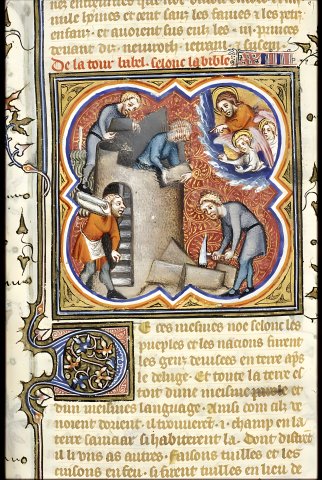 mule homes et cent sans les fames et les petiz
enfanz et avoient sus eulz les .iii. princes
De la tour babel. selonc la bible
De ces mesmes noe selonc les
pueples et les nacions furent
les genz devisees en terre aps
le deluge. Et toute la terre es
toit dune mesme parole et
dun mesmes language. Ainsi com il ve
noient dorient. il trouverent .i. champ en la
terre sannaar si habiterent la. Dont distret
il li uns as autres. Faisons tuilles et les
cuisons en feu. si firent tuilles en lieu de